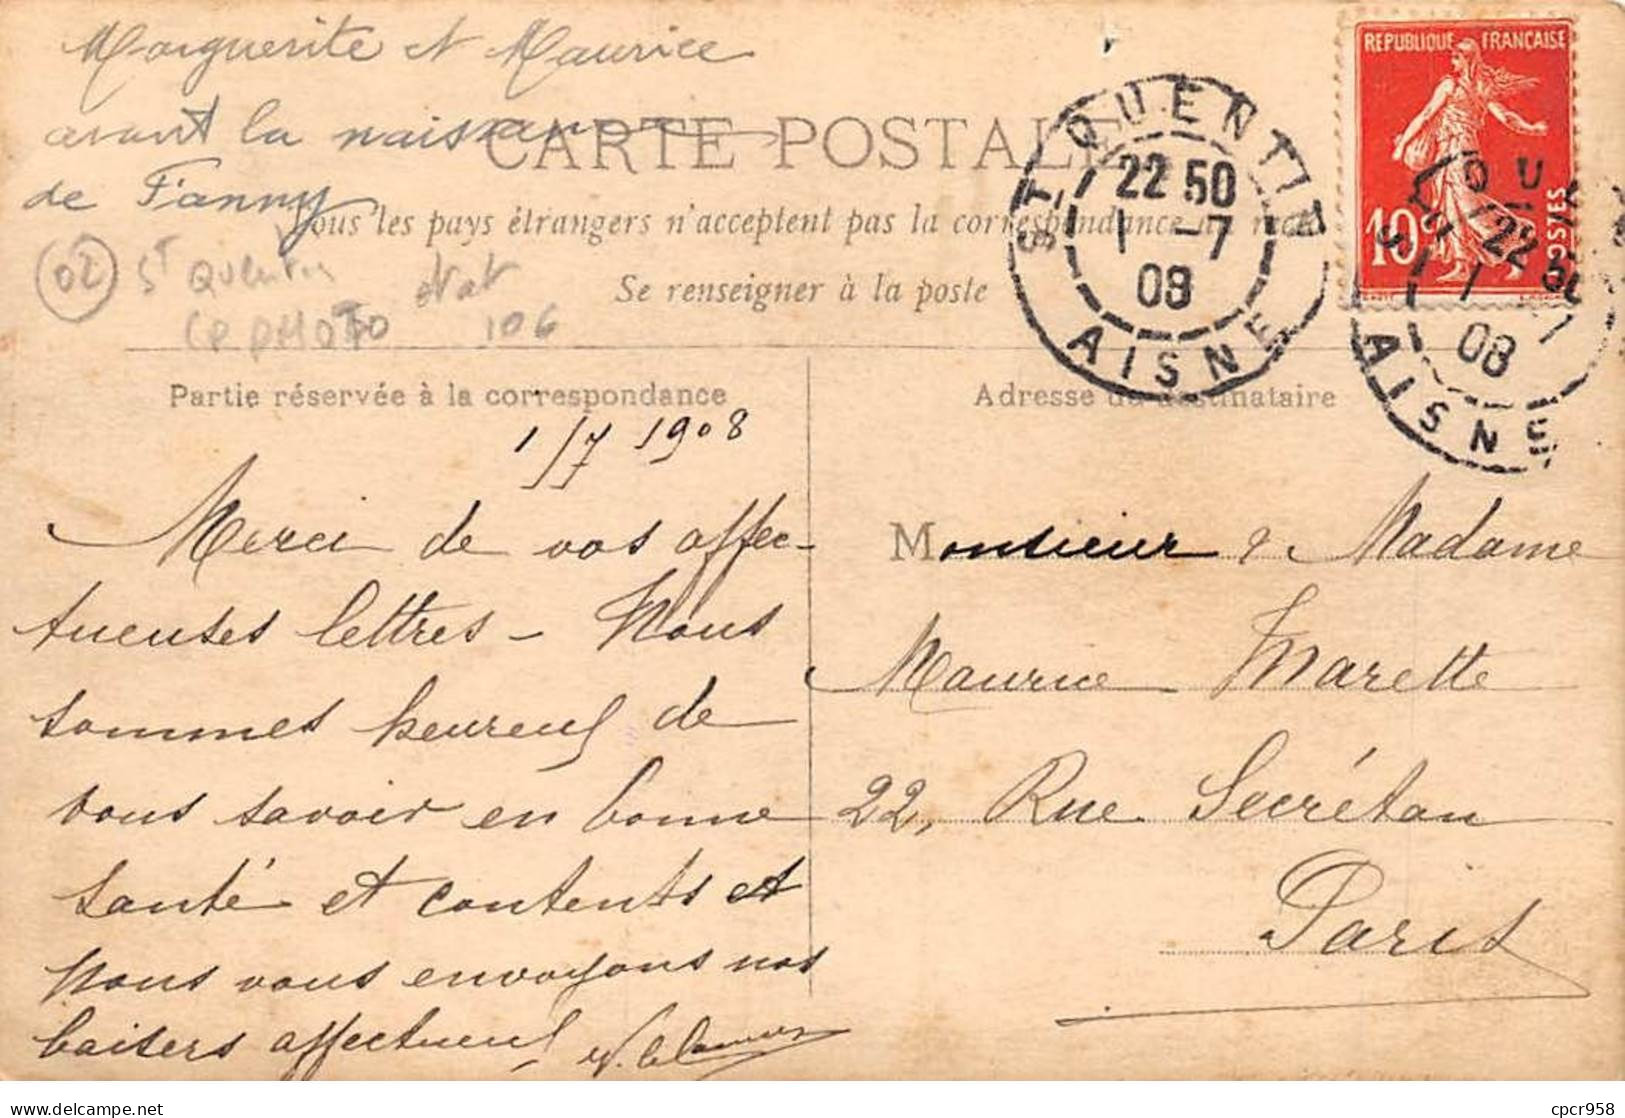 Marguerite et Maurice
avant la naissance
de Fanny
CARTE POSTALE
Tous les pays étrangers n'acceptent pas la correspondance au recto
Se renseigner à la poste
02 St Quentin
CP PHOTO
106
REPUBLIQUE FRANÇAISE
10c POSTES
ST QUENTIN
22 50
1 -7
08
AISNE
QU
22 50
1 -7
08
AISNE
Partie réservée à la correspondance
Adresse du destinataire
1/7 1908
Merci de vos affec-
tueuses lettres - Nous
sommes heureux de
vous savoir en bonne
santé et contents et
nous vous envoyons nos
baisers affectueux
Monsieur & Madame
Maurice Marette
22, Rue Secrétan
Paris
delcampe.net
cpcr958